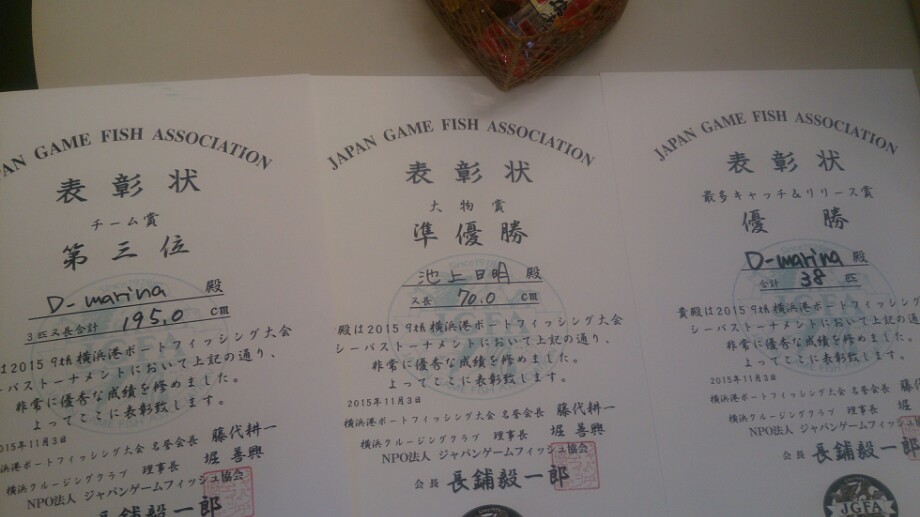 PAN GAME FISH ASSOCIATION
表彰状
チーム賞
第三位
D-marina 殿
3匹叉長合計 195.0 cm
は2015 9th横浜港ボートフィッシング大会
ーバストーナメントにおいて上記の通り、
非常に優秀な成績を修めました。
よってここに表彰致します。
2015年11月3日
横浜港ボートフィッシング大会 名誉会長 藤代耕一
横浜クルージングクラブ 理事長 堀善興
NPO法人 ジャパンゲームフィッシュ協会
長鋪毅一郎
JAPAN GAME FISH ASSOCIATION
表彰状
大物賞
準優勝
池上日明 殿
叉長 70.0 cm
殿は2015 9th横浜港ボートフィッシング大会
シーバストーナメントにおいて上記の通り、
非常に優秀な成績を修めました。
よってここに表彰致します。
2015年11月3日
横浜港ボートフィッシング大会 名誉会長 藤代耕一
横浜クルージングクラブ 理事長 堀善興
NPO法人 ジャパンゲームフィッシュ協会
会長 長鋪毅一郎
JAPAN GAME FISH ASSOCIATION
表彰状
最多キャッチ&リリース賞
優勝
D-marina 殿
合計 38 匹
貴殿は2015 9th横浜港ボートフィッシング大会
シーバストーナメントにおいて上記の
非常に優秀な成績を修めました。
よってここに表彰致します。
2015年11月3日
横浜港ボートフィッシング大会 名誉会長 藤代
横浜クルージングクラブ 理事長 堀
NPO法人 ジャパンゲームフィッシュ
会長 長鋪毅一郎
JGFA